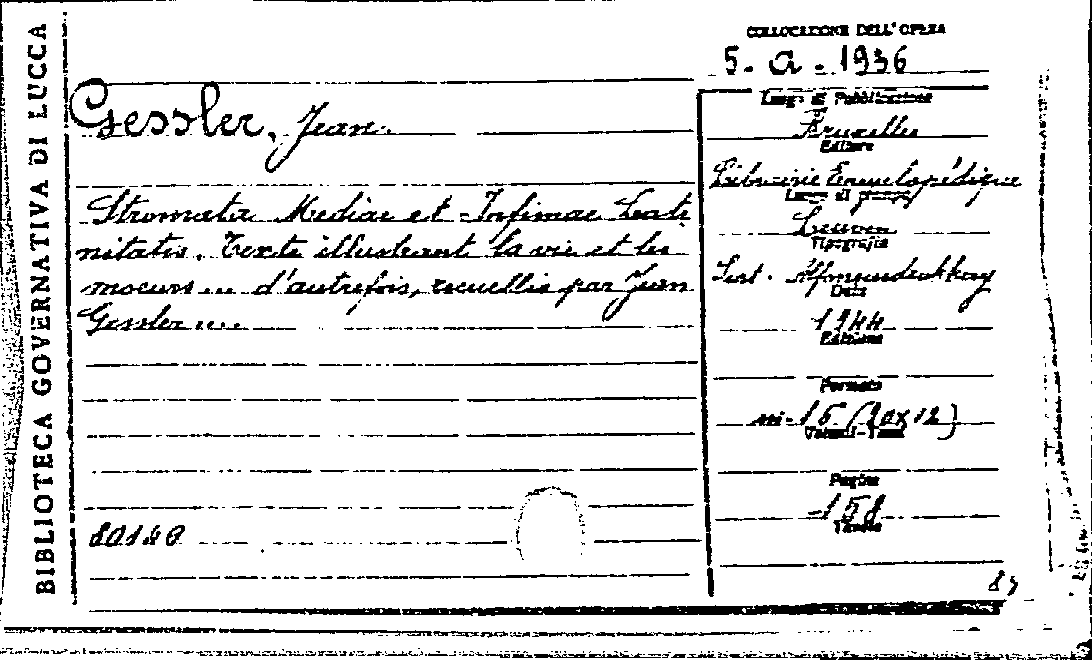 BIBLIOTECA GOVERNATIVA DI LUCCA
COLLOCAZIONE DELL'OPERA
5. a. 1936
Gessler, Jean.
Stromata Mediae et Infimae Lati
nitatis. Texte illustrant la vie et les
moeurs ... d'autrefois, recueillis par Jean
Gessler ....
80140
Luogo di Pubblicazione
Bruxelles
Editore
Librairie Encyclopédique
Luogo di
Leuven
Tipografia
Data
1944
Edizione
Formato
in-16 (20x12)
Volumi-Tomi
Pagine
158
Tavole